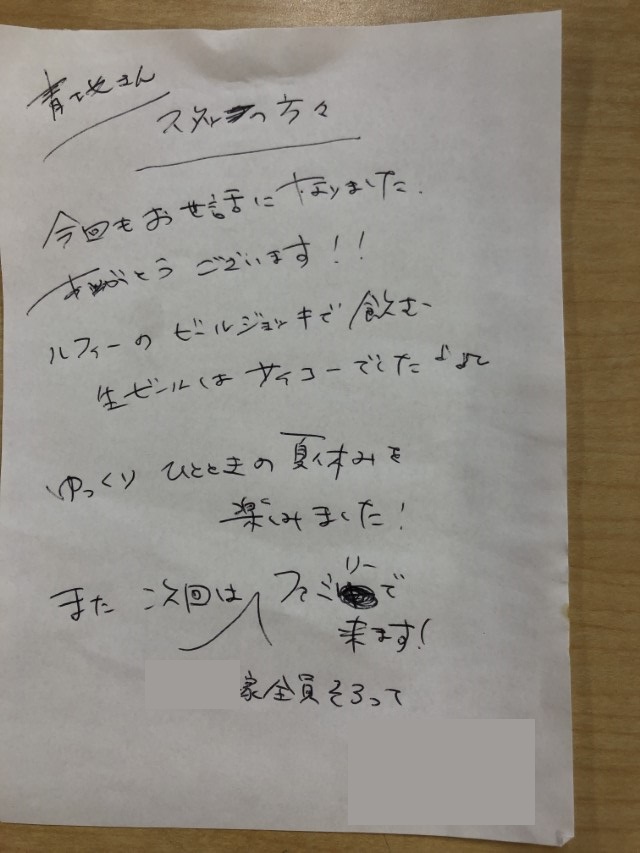 さん
スタッフの方々
今回もお世話になりました.
ありがとうございます!!
ルフィーのビールジョッキで飲む
生ビールはサイコーでした♪
ゆっくりひとときの夏休みを
楽しみました!
また次回は ファミリーで
来ます!
家全員そろって